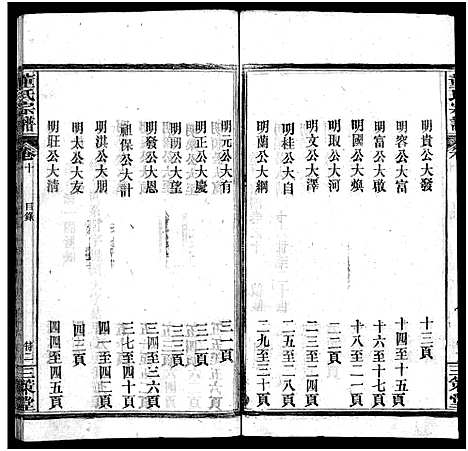 明貴公大發 十三頁
明容公大富 十四至十五頁
明富公大啟 十六至十七頁
明國公大煥 十八至二一頁
明取公大河 二二頁
明文公大澤 二三至二四頁
明桂公大自 二五至二八頁
明蘭公大綱 二九至三十頁
明元公大有 三一頁
明正公大慶 三二頁
明朗公大望 三三頁
明發公大恩 三四至三六頁
祖保公大計 三七至四十頁
明淇公大朋
明太公大友 四三頁
明莊公大清 四四至四五頁
董氏宗譜 卷十 目錄 三策堂